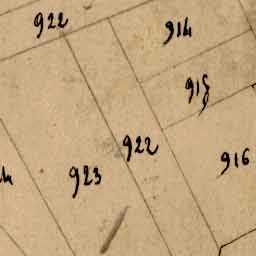 922
914
915
922
916
923